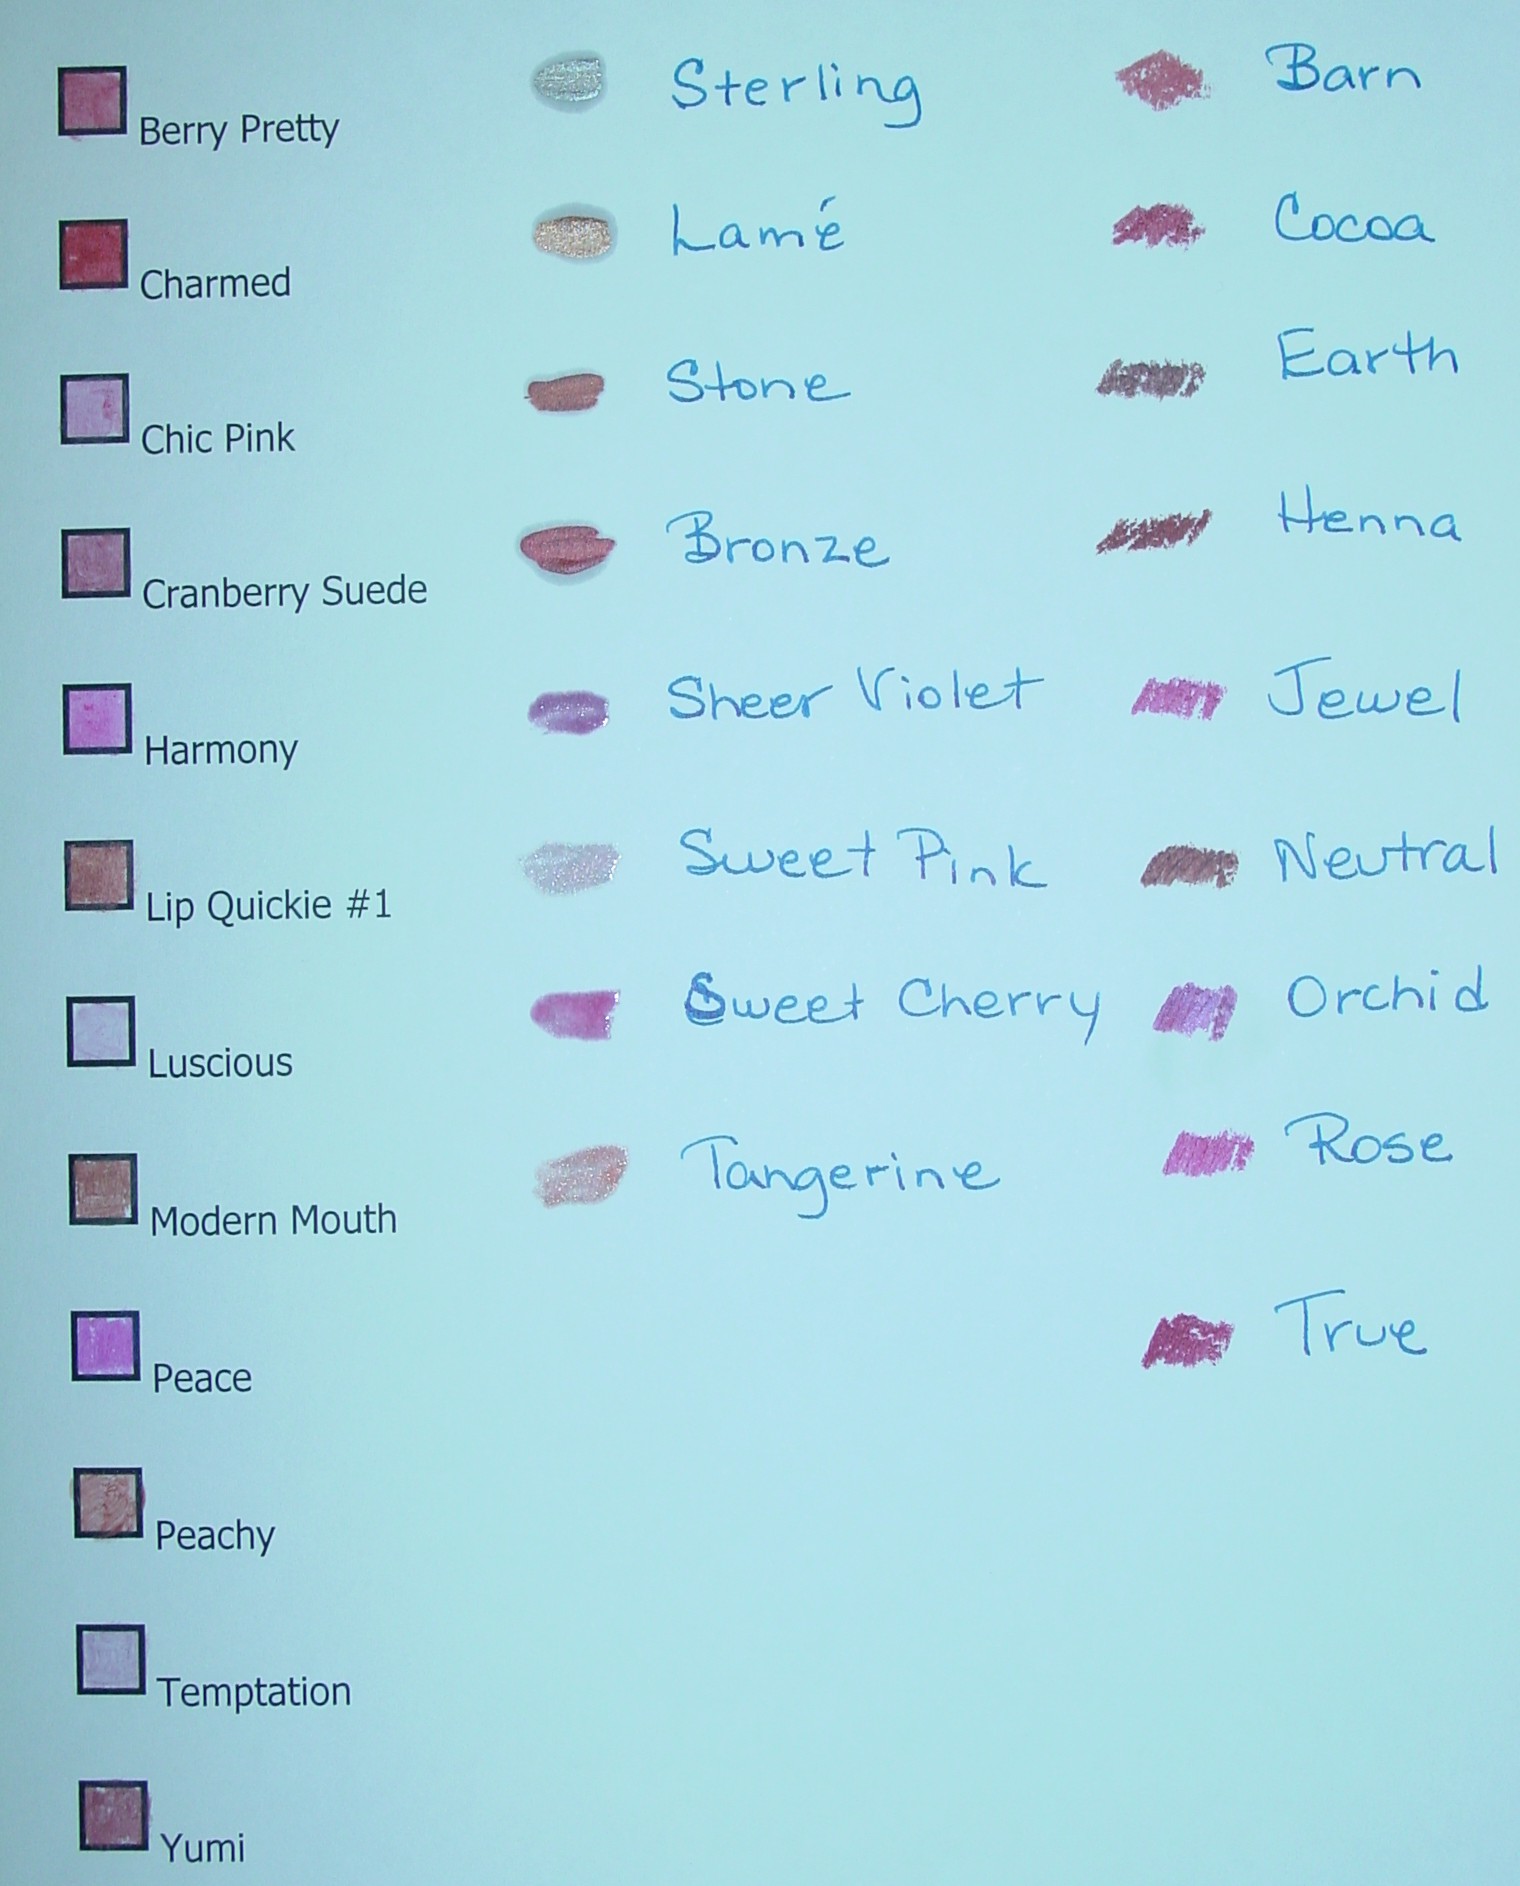 Berry Pretty
Charmed
Chic Pink
Cranberry Suede
Harmony
Lip Quickie #1
Luscious
Modern Mouth
Peace
Peachy
Temptation
Yumi
Sterling
Lamé
Stone
Bronze
Sheer Violet
Sweet Pink
Sweet Cherry
Tangerine
Barn
Cocoa
Earth
Henna
Jewel
Neutral
Orchid
Rose
True